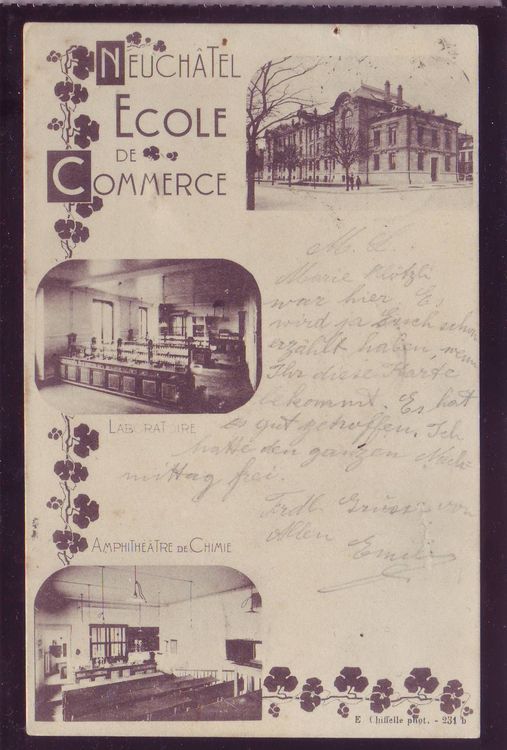 NEUCHÂTEL
ECOLE
DE
COMMERCE
M. L.
Marie Klötzli
war hier. Es
wird ja Euch schon
erzählt haben, wenn
Ihr diese Karte
bekommt. Es hat
es gut getroffen. Ich
hatte den ganzen Nach-
mittag frei.
Frdl. Grüsse von
Allen Emil
LABORATOIRE
AMPHITHÉÂTRE DE CHIMIE
E. Chiffelle phot. - 231 b